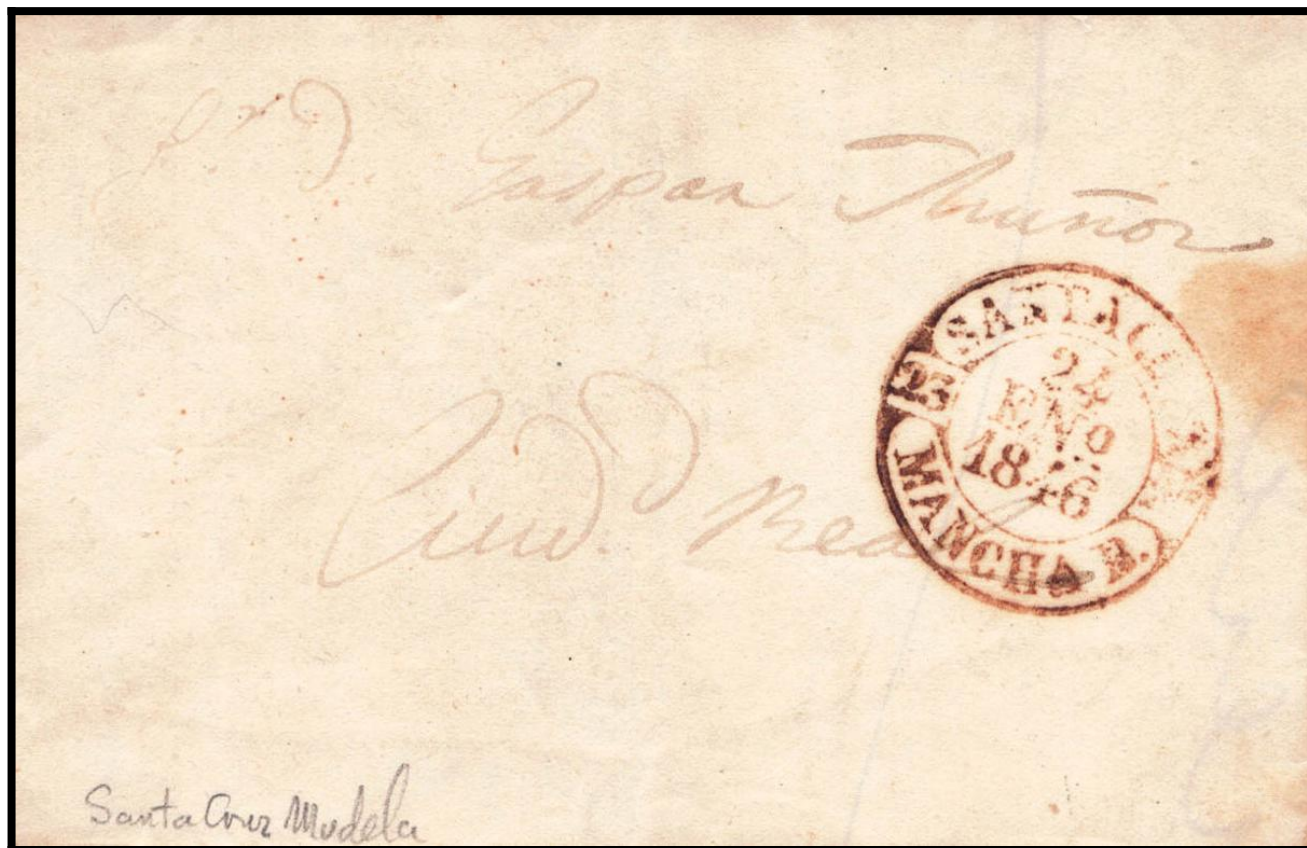 Sr. D. Gaspar Muñoz
Ciud. Real
SANTA CRUZ
24
ENO
1846
MANCHA B.
Santa Cruz Mudela